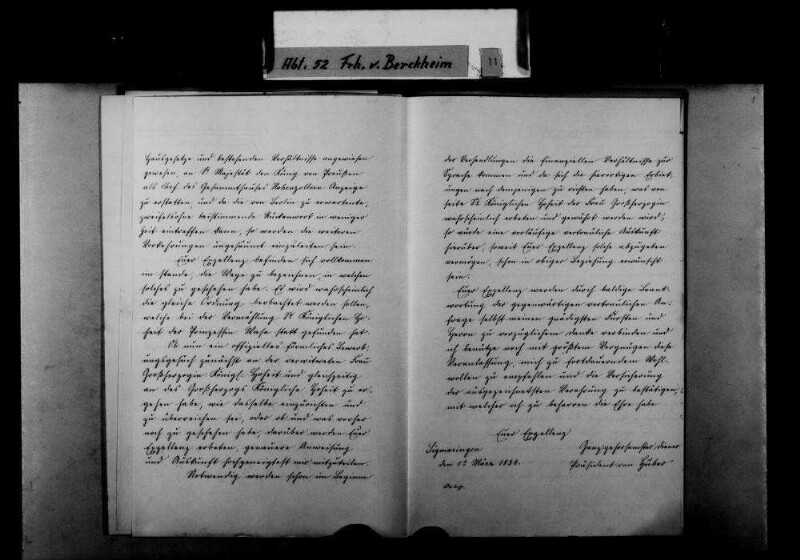 Abt. 52 Frh. v. Berckheim 11
Hausgesetze und bestehenden Verhältnisse angewiesen
gewesen, an Se Majestät den König von Preußen
als Chef des Gesammthauses Hohenzollern Anzeige
zu erstatten, und da die von Berlin zu erwartende,
zweifelsohne beistimmende Rückantwort in weniger
Zeit eintreffen kann, so werden die weiteren
Vorkehrungen ungesäumt einzuleiten sein.
Euer Exzellenz befinden sich vollkommen
im stande, die Wege zu bezeichnen, in welchen
solches zu geschehen habe. Es wird wahrscheinlich
die gleiche Ordnung beobachtet werden sollen,
welche bei der Vermählung Ir Königlichen Ho-
heit der Prinzessin Wasa statt gefunden hat.
Ob nun ein offizielles förmliches Bewerb-
ungsgesuch zunächst an der verwitweten Frau
Großherzogin Königl. Hoheit und gleichzeitig
an des Großherzogs Königliche Hoheit zu er-
gehen habe, wie dasselbe einzurichten und
zu überreichen sei, oder ob und was vorher
noch zu geschehen habe, darüber werden Euer
Exzellenz erbeten, genauere Anweisung
und Auskunft hochgeneigtest mir mitzuteilen.
Notwendig werden schon im Beginne
der Verhandlungen die finanziellen Verhältnisse zur
Sprache kommen und da sich die hierortigen Erbiet-
ungen nach demjenigen zu richten haben, was von
seite Ir Königlichen Hoheit der Frau Großherzogin
wahrscheinlich erbeten und gewählt werden wird;
so würde eine vorläufige vertrauliche Auskunft
hierüber, soweit Euer Exzellenz solche abzugeben
vermögen, schon in obiger Beziehung erwünscht
sein.
Euer Exzellenz werden durch baldige Beant-
wortung der gegenwärtigen vertraulichen An-
frage selbst meinen gnädigsten Fürsten und
Herrn zu vorzüglichem Danke verbinden und
ich benütze noch mit größtem Vergnügen diese
Veranlassung, mich zu fortdauerndem Wohl-
wollen zu empfehlen und die Versicherung
der ausgezeichnetsten Verehrung zu bestätigen,
mit welcher ich zu beharren die Ehre habe
Euer Exzellenz
Sigmaringen Ganz gehorsamster Diener
den 1t März 1834. Präsident von Huber